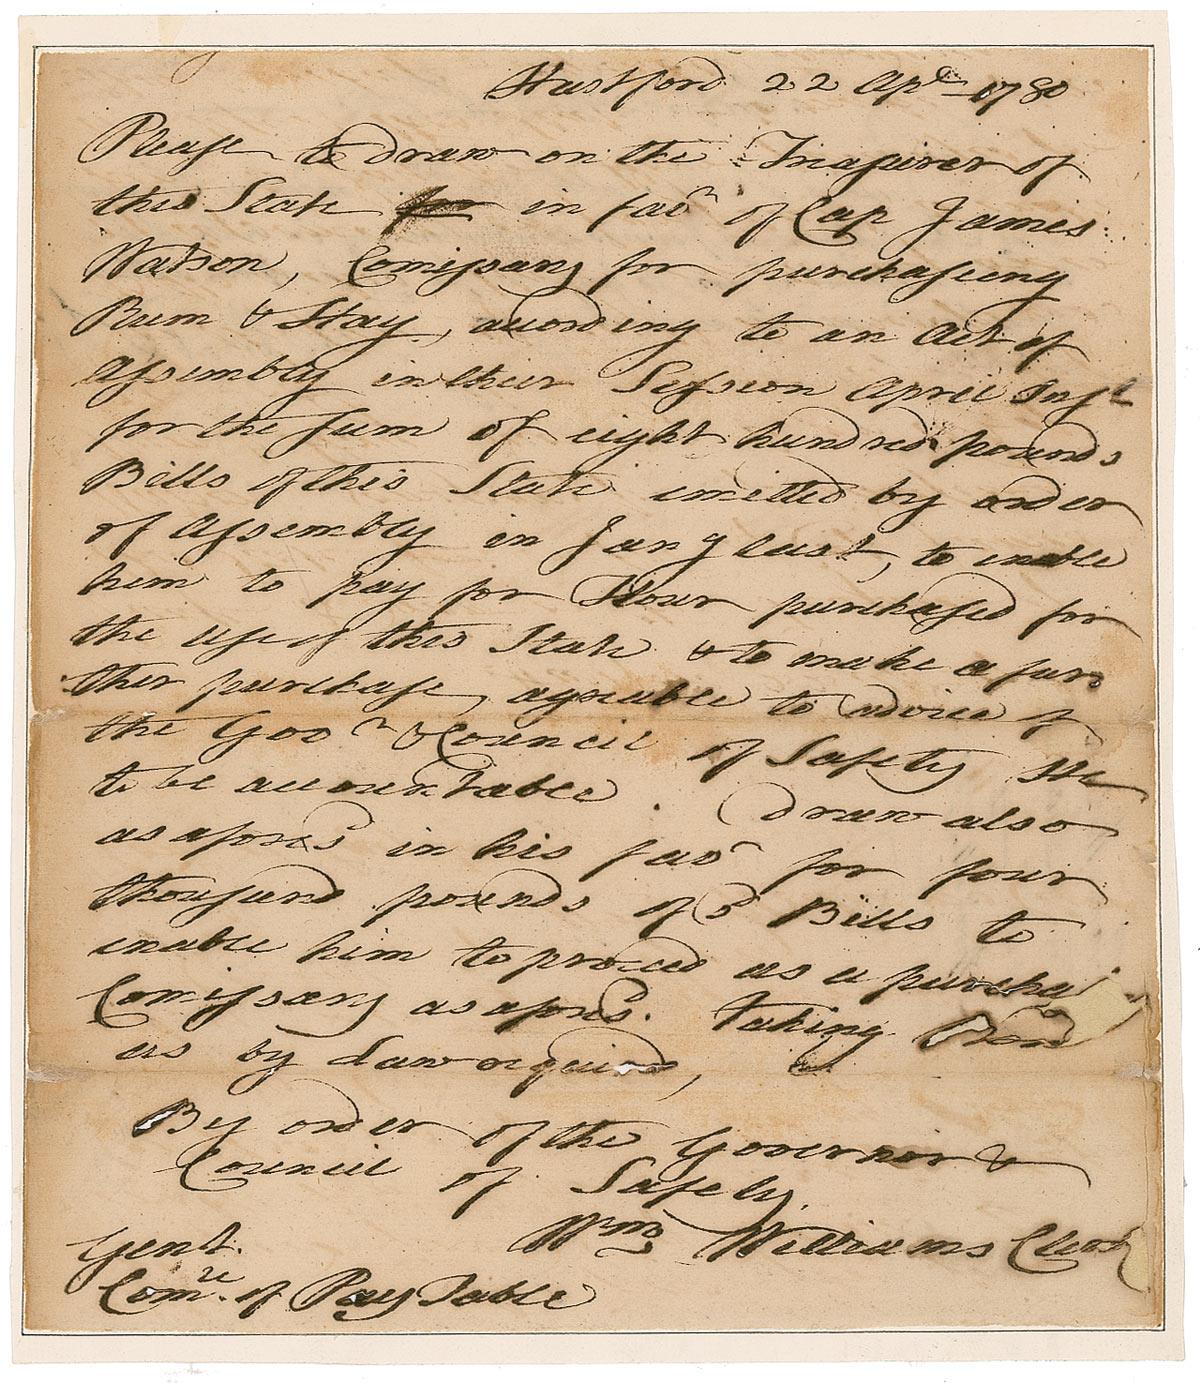 Hartford 22 Apl 1780
Please to draw on the Treasurer of
this State for in favr of Cap James
Watson, Comissary for purchaseing
Rum & Hay, according to an Act of
Assembly in their Session April Inst
for the sum of eight hundred pounds
Bills of this State emitted by order
of Assembly in Jany last, to enable
him to pay for Flour purchased for
the use of this State & to make a fur
ther purchase, agreable to advice of
the Govr & Council of Safety He
to be accountable. draw also
as aforesd in his favr for four
thousand pounds of sd Bills to
enable him to proceed as a purcha
Comissary as aforesd. taking Bond
as by Law required,
By order of the Governor &
Council of Safety.
Wm Williams Clerk
Gent.
Comtee of Pay Table